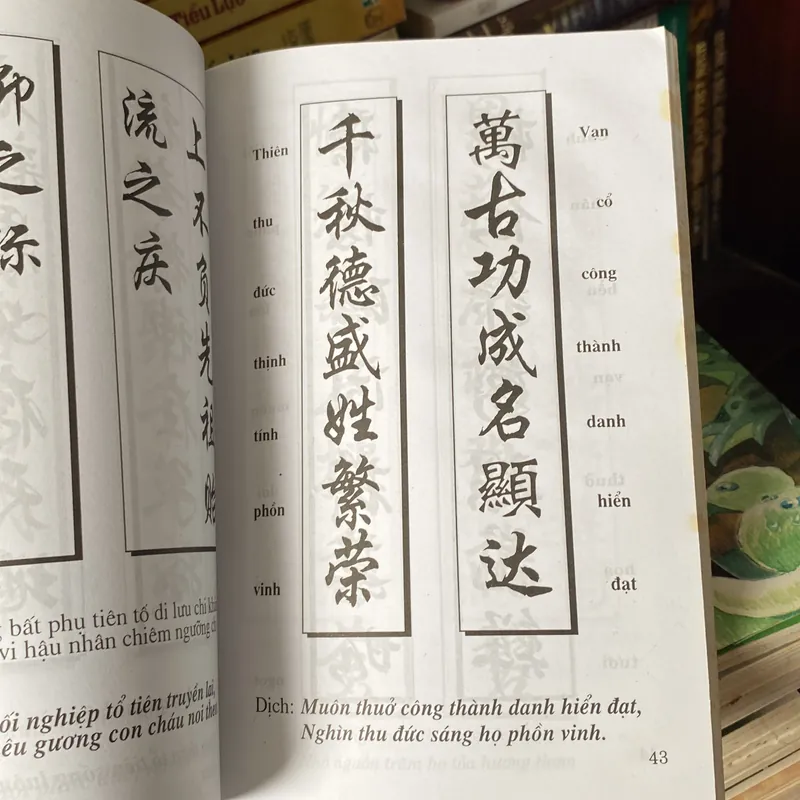 Tiểu Lực
上不负先祖贻
流之庆
仰之弥
bất phụ tiên tổ di lưu chi
vi hậu nhân chiêm ngưỡng
nghiệp tổ tiên truyền lại,
gương con cháu noi
萬古功成名顯达
Vạn
cổ
công
thành
danh
hiển
đạt
千秋德盛姓繁荣
Thiên
thu
đức
thịnh
tính
phồn
vinh
Dịch: Muôn thuở công thành danh hiển đạt,
Nghìn thu đức sáng họ phồn vinh.
43